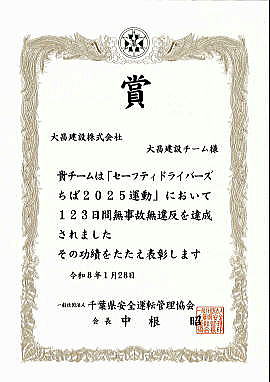 賞
大昌建設株式会社
大昌建設チーム様
貴チームは「セーフティドライバーズ
ちば2025運動」において
123日間無事故無違反を達成
されました
その功績をたたえ表彰します
令和8年1月28日
一般社団法人 千葉県安全運転管理協会
会長 中根 昭